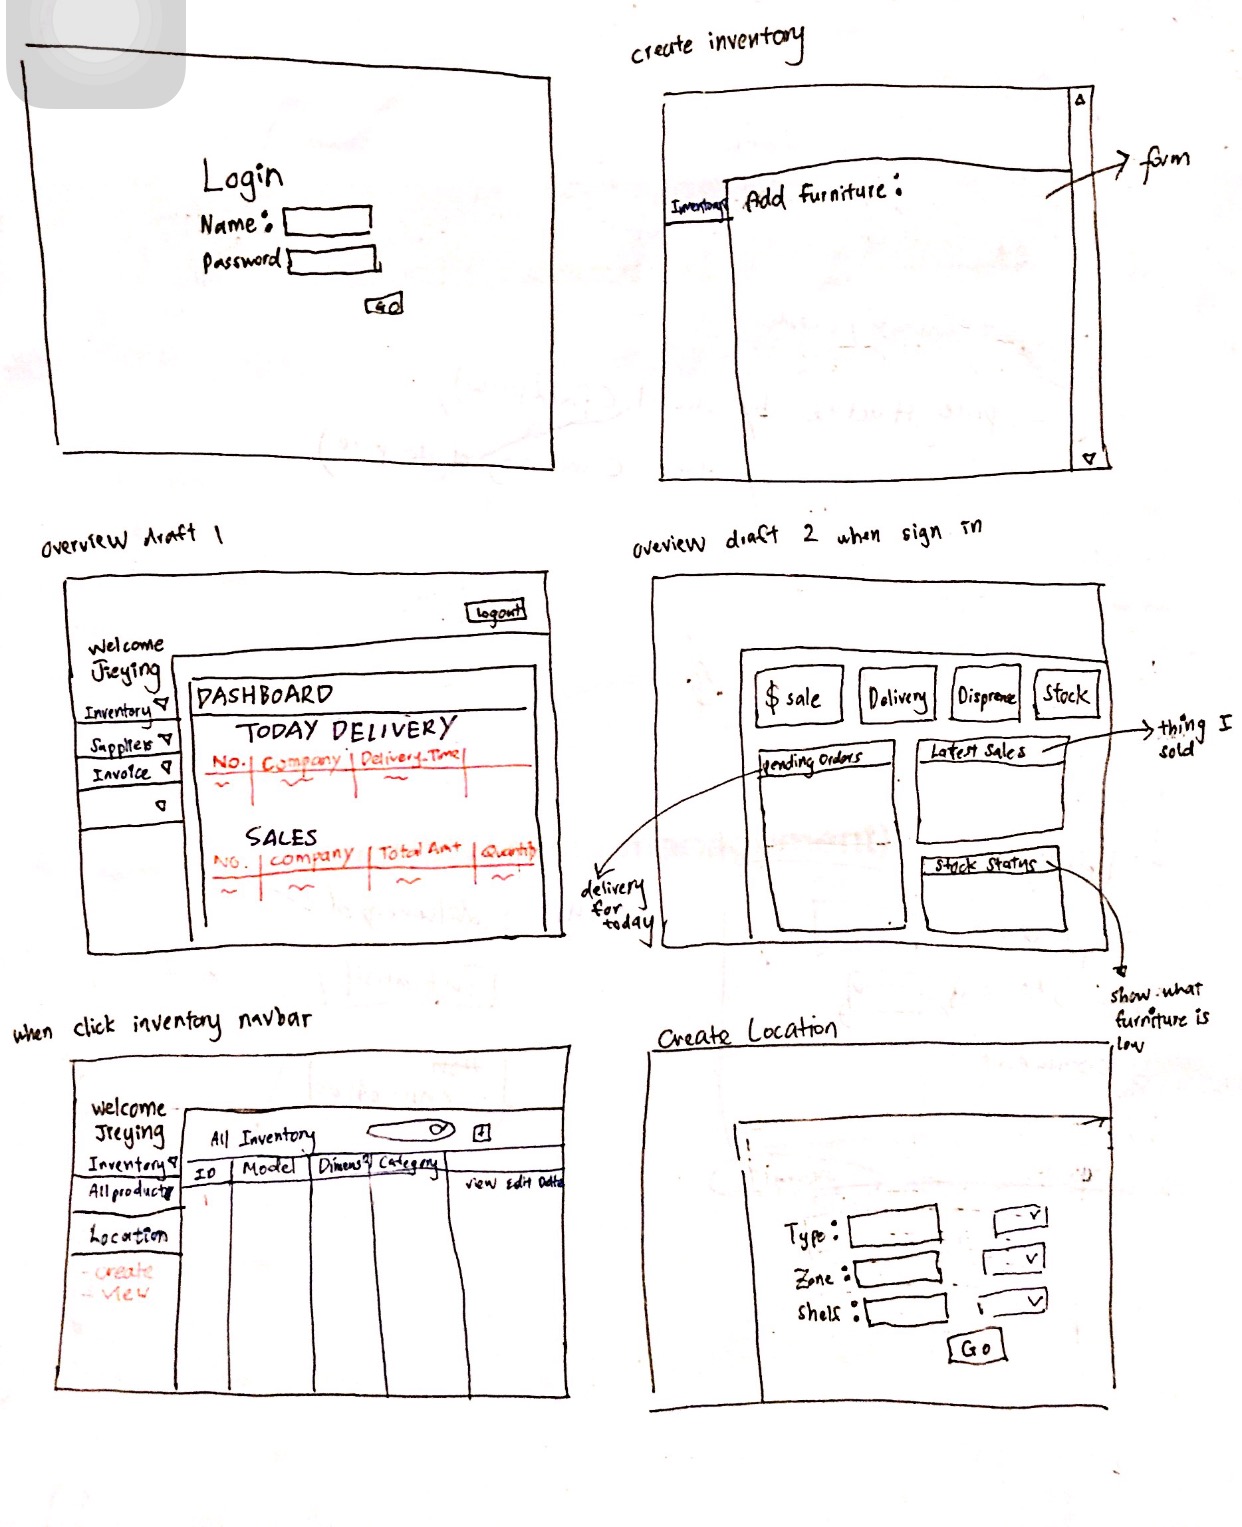 Login
Name:
Password
GO
create inventory
Inventory
Add Furniture:
form
overview draft 1
Logout
Welcome
Jieying
Inventory
Suppliers
Invoice
DASHBOARD
TODAY DELIVERY
No. Company Delivery-Time
SALES
No. company Total Amt Quantity
oveview draft 2 when sign in
$ sale Delivery Stock
pending orders
Latest Sales
Stock Status
thing I
sold
delivery
for
today
show what
furniture is
low
when click inventory navbar
Welcome
Jieying
Inventory
All product
Location
- create
- view
All Inventory +
ID Model Dimens Category
view Edit
Create Location
Type:
Zone:
Shelf:
Go